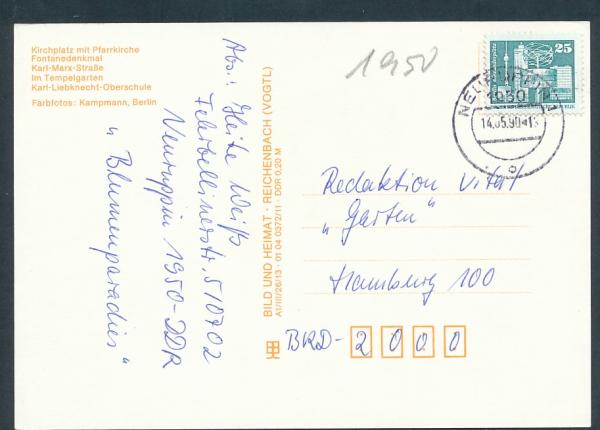 Kirchplatz mit Pfarrkirche
Fontanedenkmal
Karl-Marx-Straße
Im Tempelgarten
Karl-Liebknecht-Oberschule
Farbfotos: Kampmann, Berlin
Abs.: Heike Weiß
Fehrbellinerstr. 5 10702
Neuruppin 1950-DDR
„Blumenparadies“
BILD UND HEIMAT · REICHENBACH (VOGTL)
A1/III/26/13 · 01 04 0372/11 · DDR 0,20 M
1950
25
NEURUPPIN 1
1950
14.05.90
Redaktion Vital
„Garten“
Hamburg 100
BRD-2000